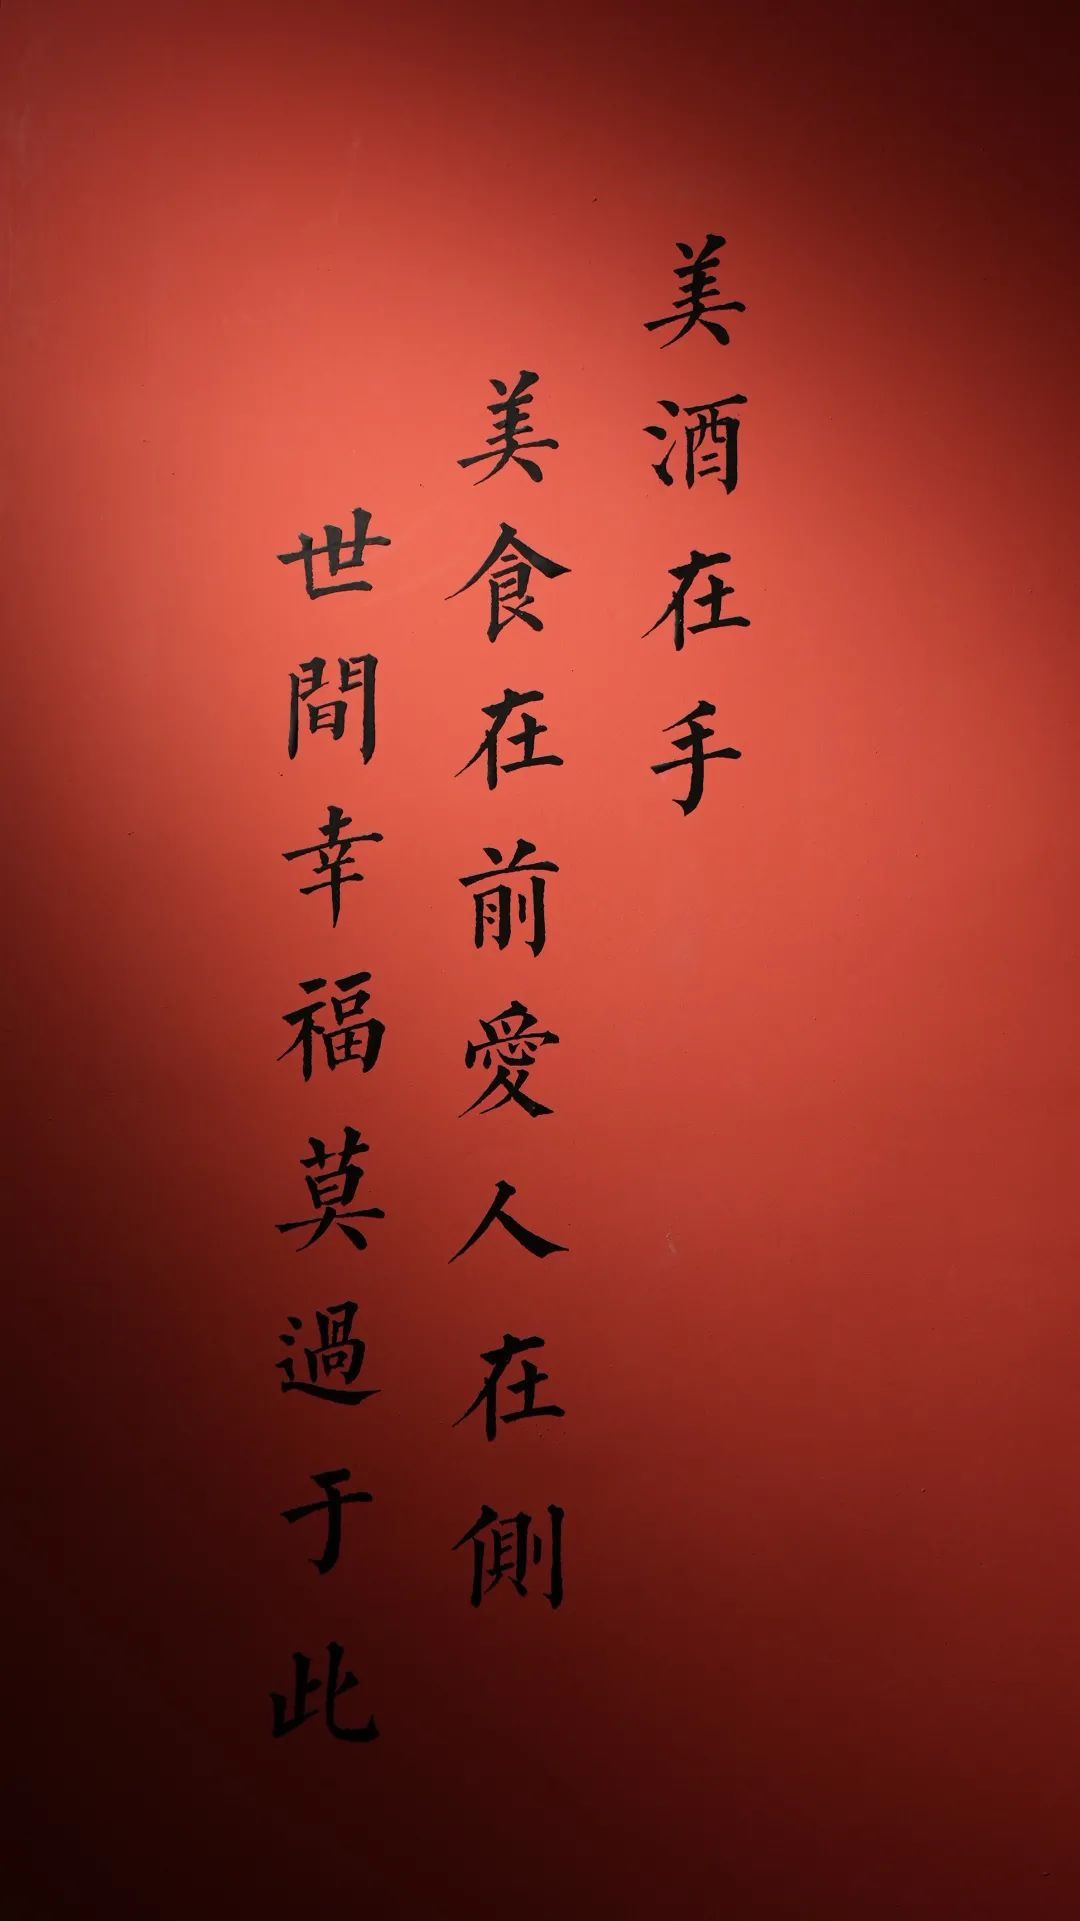 美酒在手
美食在前愛人在側
世間幸福莫過于此